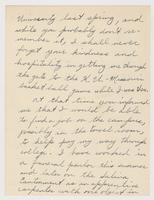 University last spring, and
while you probably don't re-
member it, I shall never
forget your kindness and
hospitality in getting me through
the gate to the K.U.-Missouri
basket ball game while I was there.
At that time you informed
me that I would be likely
to find a job on the campus,
possibly in the towel room,
to help pay my way through
college. I have worked in
a funeral parlor this summer
and later on the Salina
Cantonment as an apprentice
carpenter with one object in